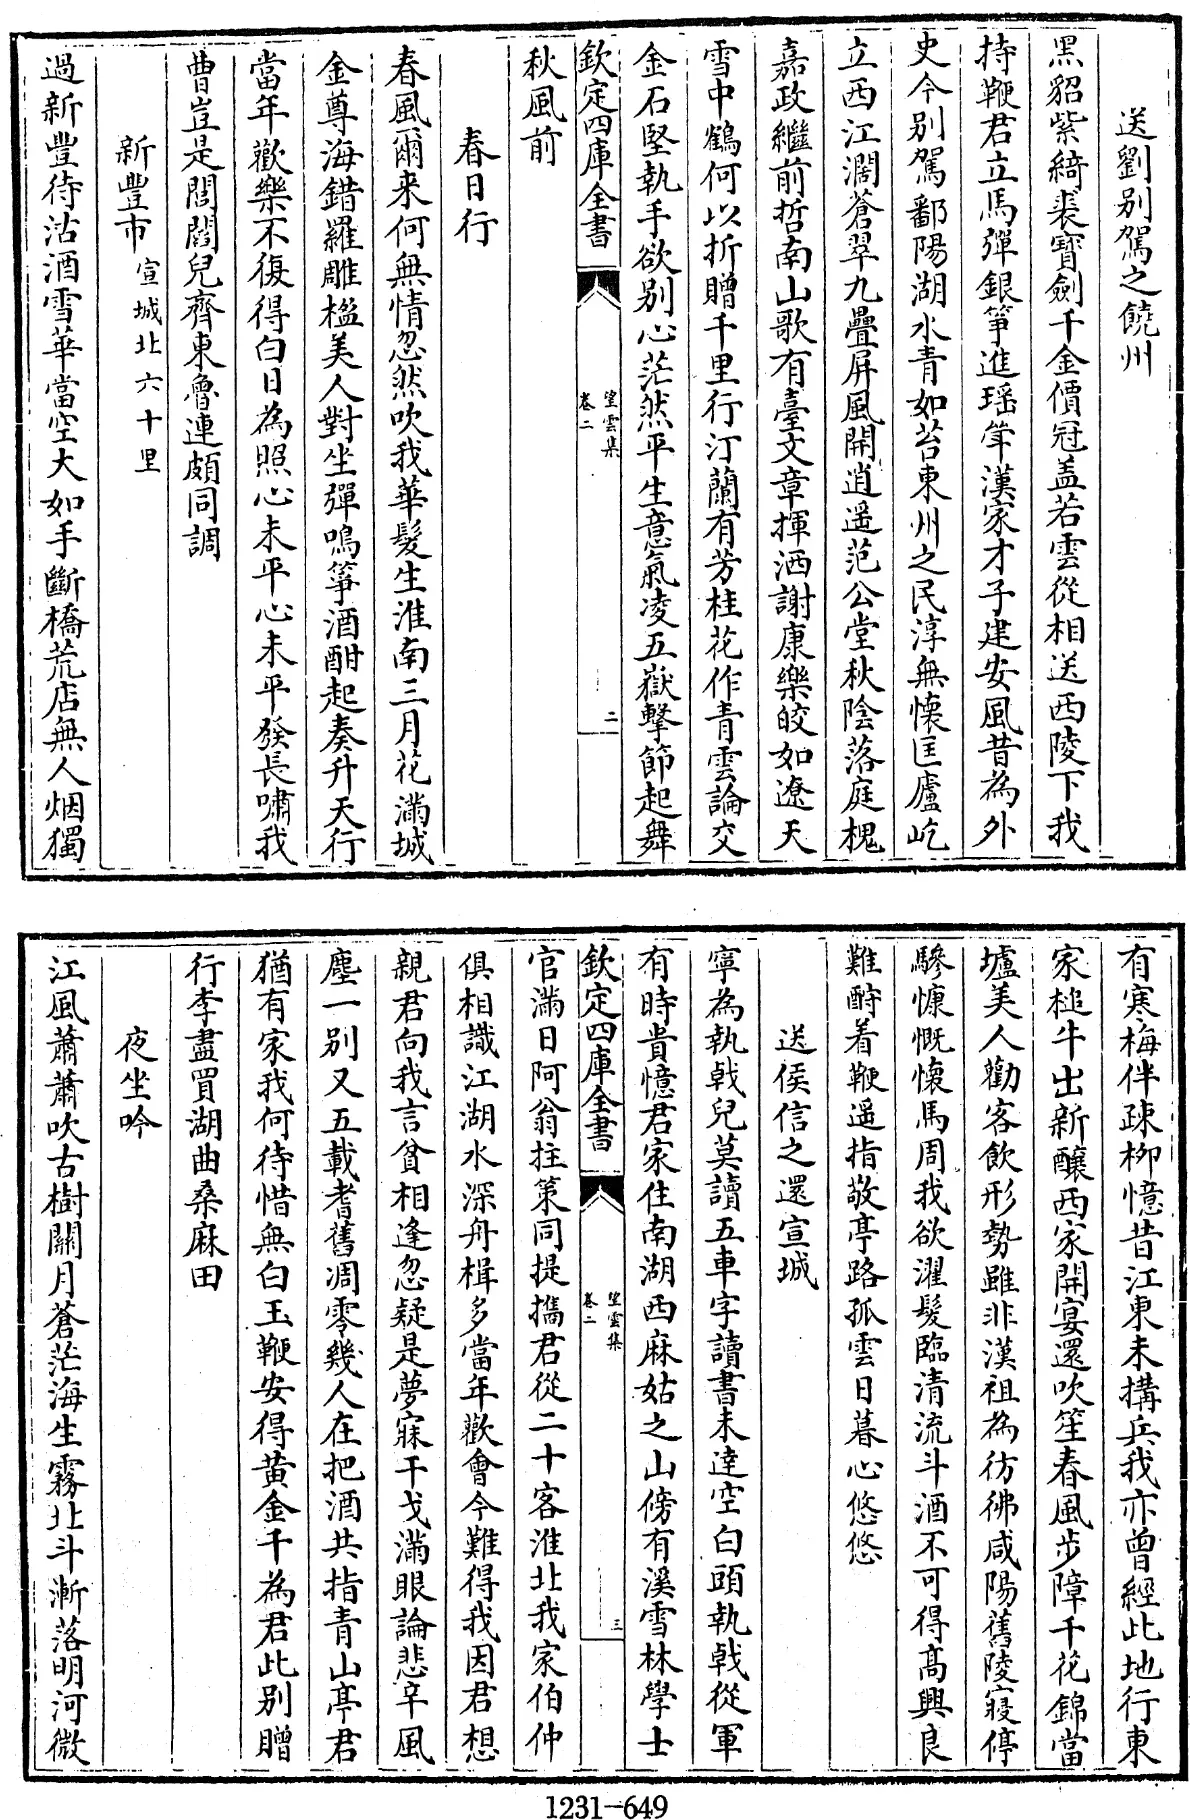 送劉别駕之饒州
黑貂紫綺裘寶劍千金價冠盖若雲從相送西陵下我
持鞭君立馬彈銀箏進瑶斝漢家才子建安風昔為外
史今别駕鄱陽湖水青如苔東州之民淳無懷匡廬屹
立西江濶蒼翠九疊屏風開逍遥范公堂秋陰落庭槐
嘉政繼前哲南山歌有臺文章揮洒謝康樂皎如遼天
雪中鶴何以折贈千里行汀蘭有芳桂花作青雲論交
金石堅執手欲别心茫然平生意氣凌五嶽擊節起舞
欽定四庫全書
望雲集
卷二
二
秋風前
春日行
春風爾来何無情忽然吹我華髮生淮南三月花滿城
金尊海錯羅雕楹美人對坐彈鳴箏酒酣起奏升天行
當年歡樂不復得白日為照心未平心未平發長嘯我
曹豈是閭閻兒齊東魯連頗同調
新豐市宣城北六十里
過新豐待沽酒雪華當空大如手斷橋荒店無人烟獨
有寒梅伴疎柳憶昔江東未搆兵我亦曾經此地行東
家槌牛出新釀西家開宴還吹笙春風步障千花錦當
壚美人勸客飲形勢雖非漢祖為彷彿咸陽舊陵寢停
驂慷慨懷馬周我欲濯髮臨清流斗酒不可得髙興良
難酧着鞭遥指敬亭路孤雲日暮心悠悠
送侯信之還宣城
寧為執戟兒莫讀五車字讀書未達空白頭執戟從軍
有時貴憶君家住南湖西麻姑之山傍有溪雪林學士
欽定四庫全書
望雲集
卷二
三
官滿日阿翁拄策同提攜君從二十客淮北我家伯仲
俱相識江湖水深舟楫多當年歡會今難得我因君想
親君向我言貧相逢忽疑是夢寐干戈滿眼論悲辛風
塵一别又五載耆舊凋零幾人在把酒共指青山亭君
猶有家我何待惜無白玉鞭安得黄金千為君此别贈
行李盡買湖曲桑麻田
夜坐吟
江風蕭蕭吹古樹關月蒼茫海生霧北斗漸落明河微
1231-649